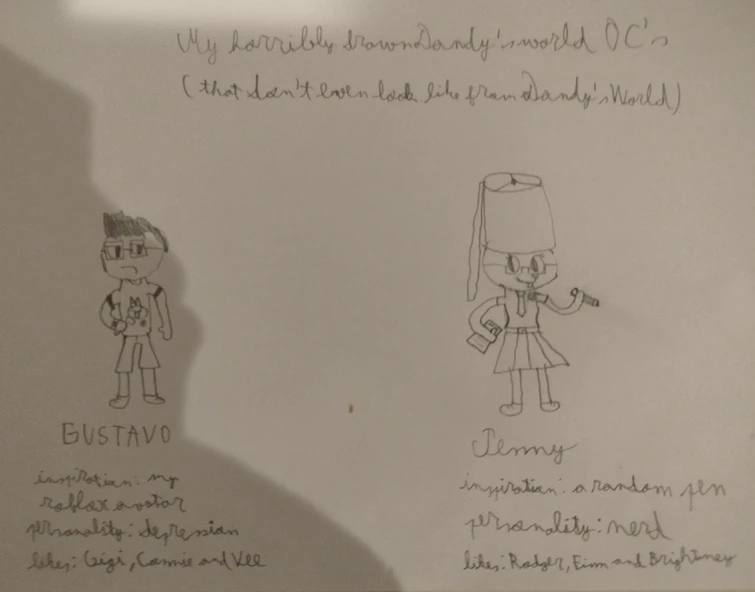 My horribly drawn Dandy's world OC's
(that don't even look like from Dandy's World)
GUSTAVO
inspiration: my
roblox avatar
personality: depression
likes: Gigi, Connie and Vee
Jenny
inspiration: a random pen
personality: nerd
likes: Rodger, Finn and Brightney